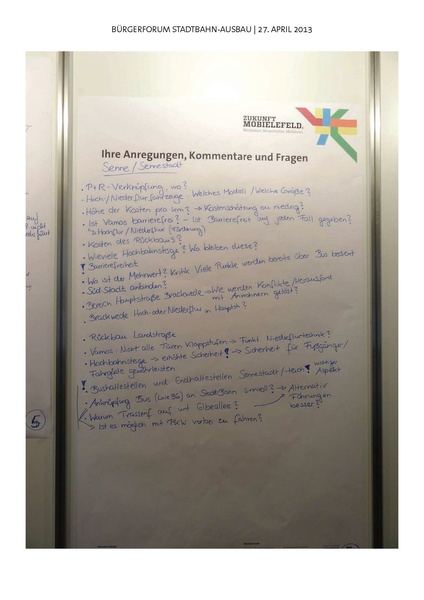 BÜRGERFORUM STADTBAHN-AUSBAU | 27. APRIL 2013
ZUKUNFT
MOBIELEFELD.
Ihre Anregungen, Kommentare und Fragen
Senne / Sennestadt
• P+R-Verknüpfung, wo?
• Hoch/Niederflurfahrzeuge Welches Modell / Welche Größe?
• Höhe der Kosten pro km? → Kostenschätzung zu niedrig?
• Ist Vamos barrierefrei? - Ist Barrierefreiheit auf jeden Fall gegeben?
Hochflur/Niederflur (Förderung)
• Kosten des Rückbaus?
• Wieviele Hochbahnsteige? Wo bleiben diese?
! Barrierefreiheit
• Wo ist der Mehrwert? Kritik: Viele Punkte werden bereits über Bus bedient
• Süd-Stadt anbinden?
• Bereich Hauptstraße Brackwede → Wie werden Konflikte/
mit Anwohnern gelöst?
• Brackwede Hoch- oder Niederflur in Hauptstr.?
• Rückbau Landstraße
• Vamos: Nicht alle Türen Klappstufen → Funkt. Niederflurtechnik?
• Hochbahnsteige → erhöhte Sicherheit! → Sicherheit für Fußgänger/
Fahrgäste gewährleisten
! Bushaltestellen und Endhaltestellen Sennestadt / wichtiger
Aspekt
• Anknüpfung Bus (Linie 36) an Stadtbahn sinnvoll? → Alternativ
Führungen
besser?
• Warum Trasse auf und Elbeallee?
→ Ist es möglich mit PKW vorbei zu fahren?
5